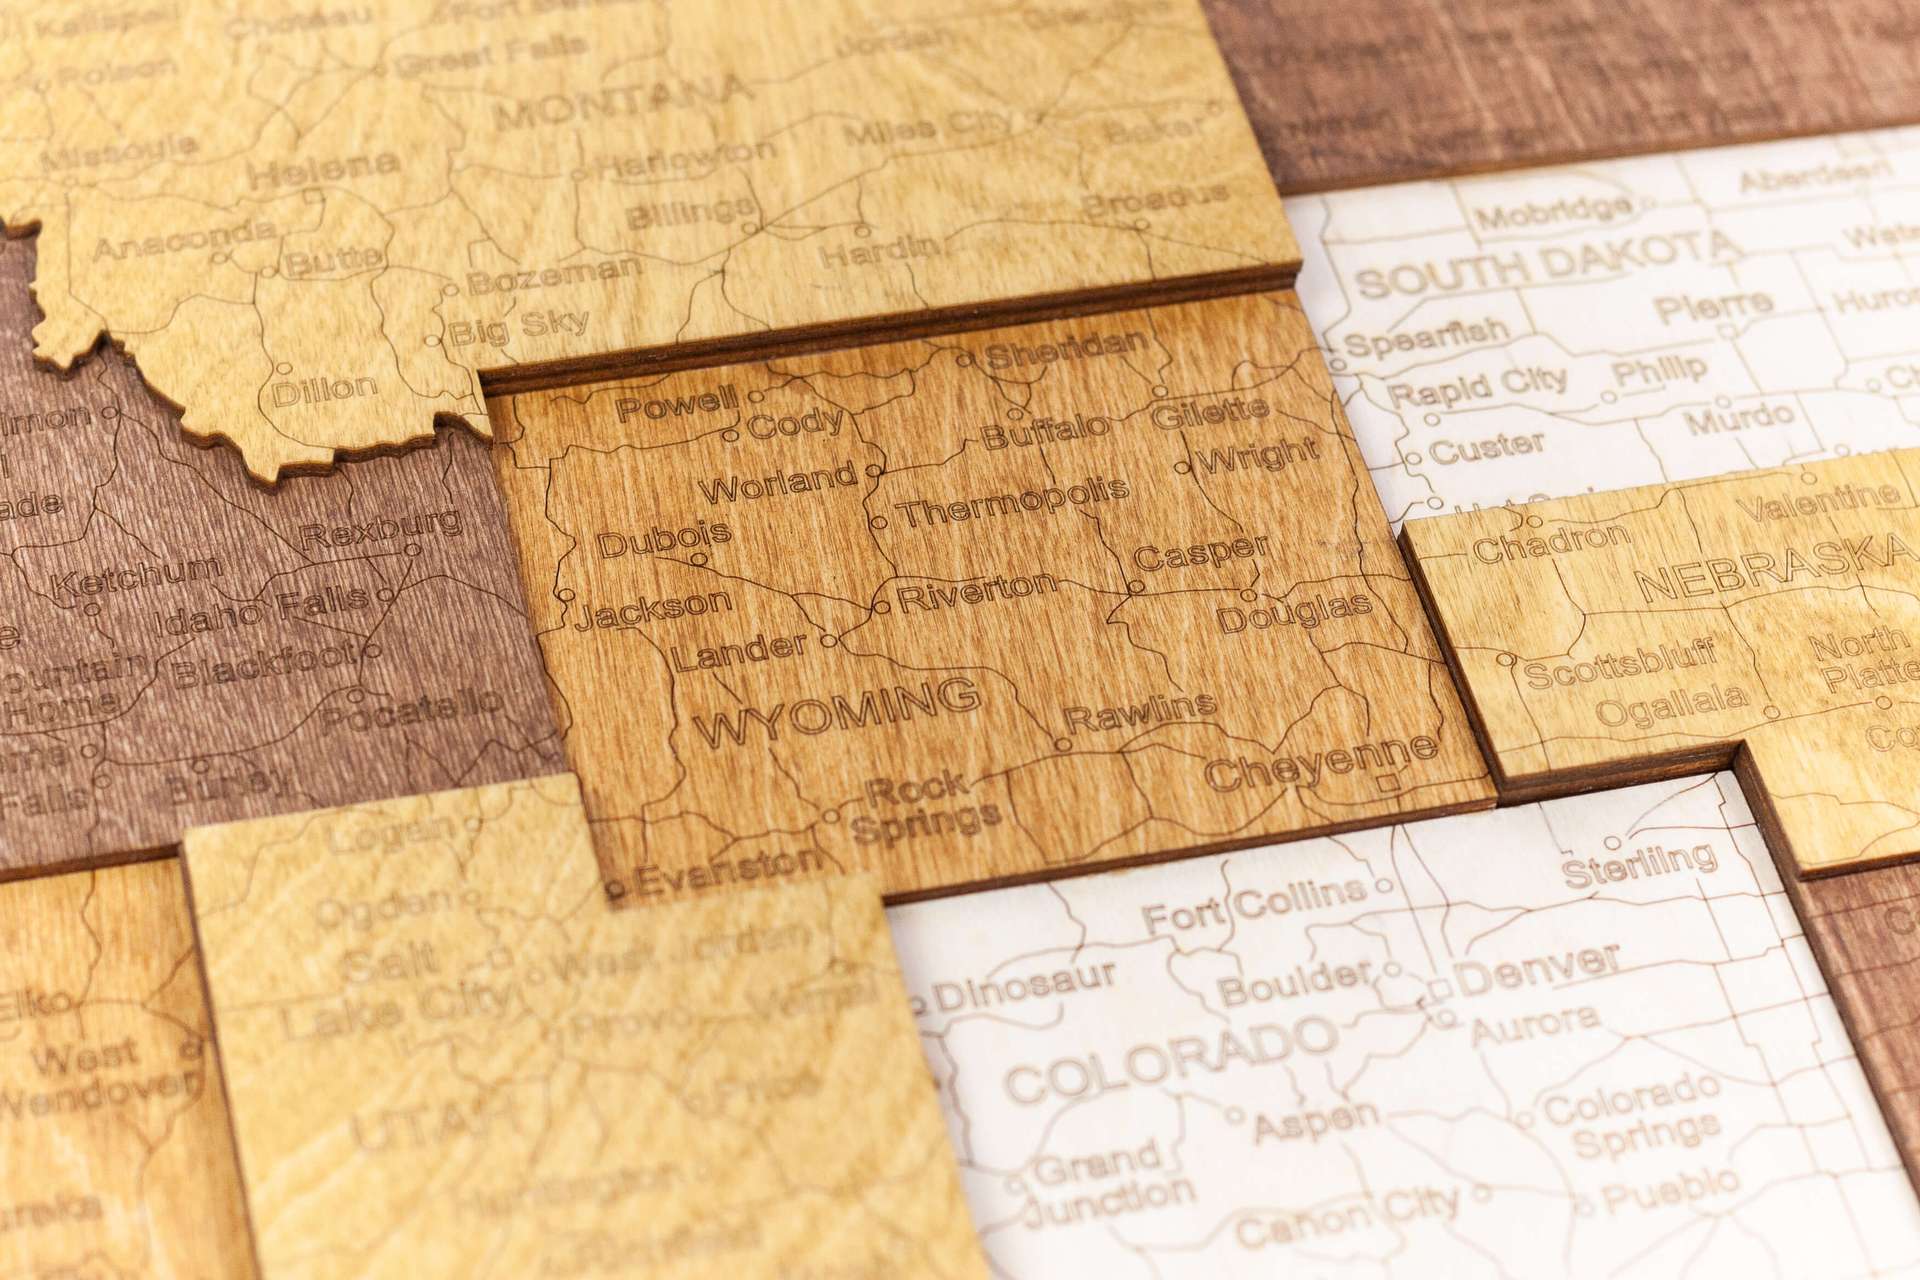 Kalispell
Choteau
Polson
Great Falls
Jordan
MONTANA
Missoula
Helena
Harlowton
Miles City
Baker
Anaconda
Butte
Billings
Hardin
Broadus
Bozeman
Big Sky
Dillon
Mobridge
Aberdeen
SOUTH DAKOTA
Pierre
Huron
Spearfish
Rapid City
Philip
Murdo
Custer
Sheridan
Powell
Cody
Buffalo
Gilette
Worland
Wright
Thermopolis
Dubois
Casper
Jackson
Riverton
Douglas
Lander
WYOMING
Rawlins
Cheyenne
Rock
Springs
Evanston
Valentine
Chadron
NEBRASKA
Scottsbluff
North
Platte
Ogallala
Rexburg
Ketchum
Idaho Falls
Blackfoot
Home
Pocatello
Falls
Burley
Logan
Ogden
Salt
Lake City
West Jordan
Provo
Vernal
Price
UTAH
Huntington
Elko
West
Wendover
Sterlilng
Fort Collins
Dinosaur
Boulder
Denver
Aurora
COLORADO
Aspen
Colorado
Springs
Grand
Junction
Canon City
Pueblo